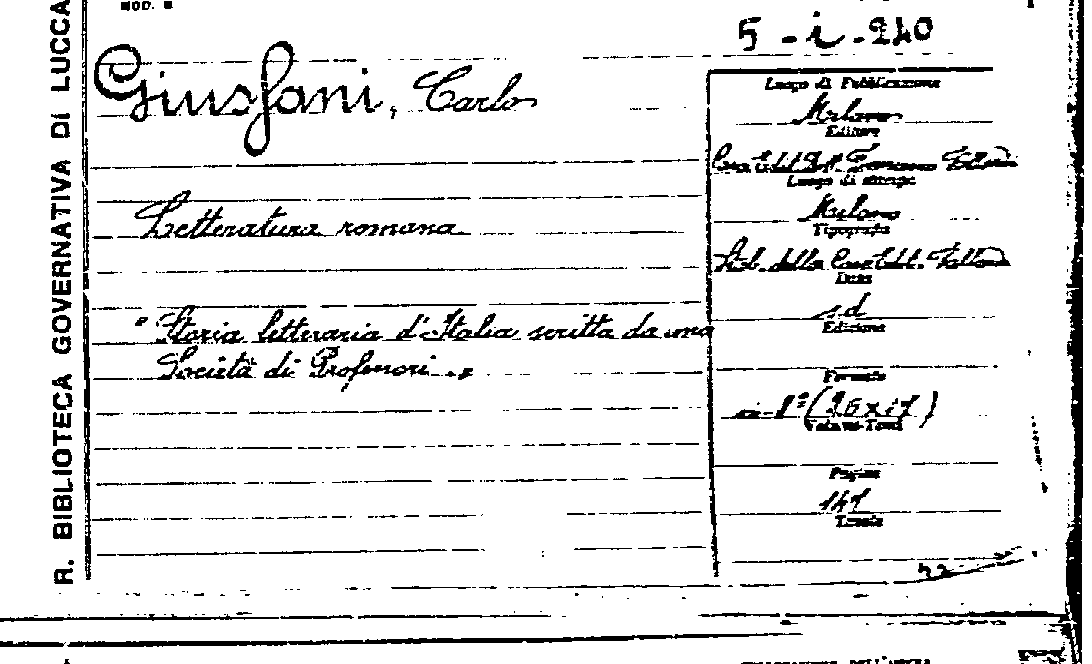 MOD.
R. BIBLIOTECA GOVERNATIVA DI LUCCA
5-i-240
Giussani, Carlo
Letteratura romana
"Storia letteraria d'Italia scritta da una
Società di Professori."
Luogo di Pubblicazione
Milano
Editore
Casa Edit. Dott. Francesco Vallardi
Luogo di stampa
Milano
Tipografia
Stab. della Casa Edit. Vallardi
Data
s.d
Edizione
Formato
in-8º (26x17)
Volume-Tomi
Pagine
147
Tavole